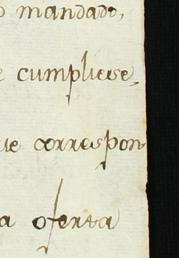 o mandado,
e cumpliese,
ue correspon
a oferta